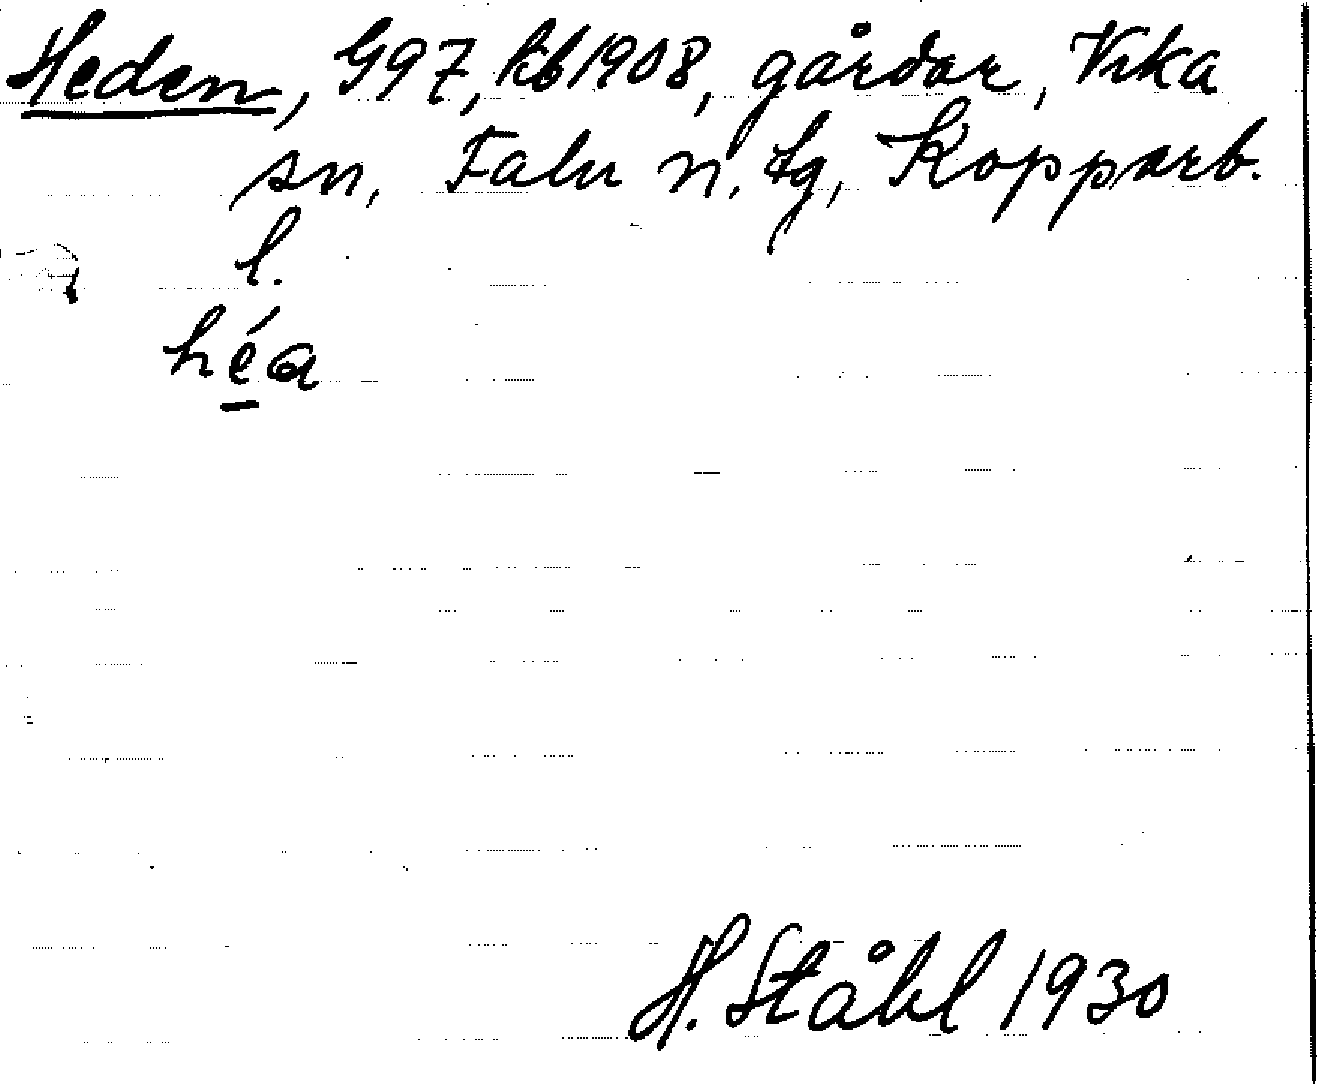 Heden, G97, kb 1908, gårdar, Vika
sn, Falu n. tg, Kopparb.
l.
héa
H. Ståhl 1930